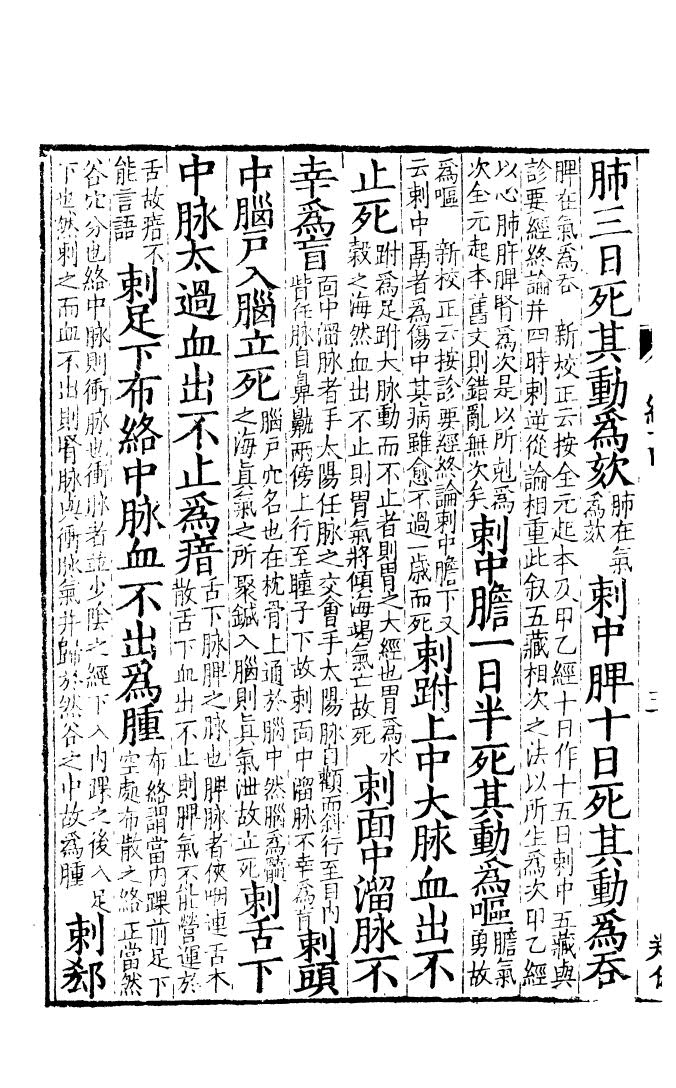 肺三日死其動爲欬肺在氣爲欬刺中脾十日死其動爲吞
脾在氣爲吞 新校正云按全元起本及甲乙經十日作十五日刺中五藏與
診要經終論并四時刺逆從論相重此叙五藏相次之法以所生爲次甲乙經
以心肺肝脾腎爲次是以所剋爲
次全元起本舊文則錯亂無次矣
刺中膽一日半死其動爲嘔膽氣勇故
爲嘔 新校正云按診要經終論刺中膽下又
云刺中鬲者爲傷中其病雖愈不過一歲而死
刺跗上中大脉血出不
止死
跗爲足跗大脉動而不止者則胃之大經也胃爲水
穀之海然血出不止則胃氣將傾海竭氣亡故死
刺面中溜脉不
幸爲盲
面中溜脉者手太陽任脉之交會手太陽脉自顴而斜行至目内
眥任脉自鼻鼽兩傍上行至瞳子下故刺面中溜脉不幸爲盲
刺頭
中腦戸入腦立死
腦戸穴名也在枕骨上通於腦中然腦爲髓
之海真氣之所聚鍼入腦則真氣泄故立死
刺舌下
中脉太過血出不止爲瘖
舌下脉脾之脉也脾脉者俠咽連舌本
散舌下血出不止則脾氣不能營運於
舌故瘖不
能言語
刺足下布絡中脉血不出爲腫
布絡謂當内踝前足下
空處布散之絡正當然
谷穴分也絡中脉則衝脉也衝脉者並少陰之經下入内踝之後入足
下也然刺之而血不出則腎脉與衝脉氣并歸於然谷之中故爲腫
刺郄